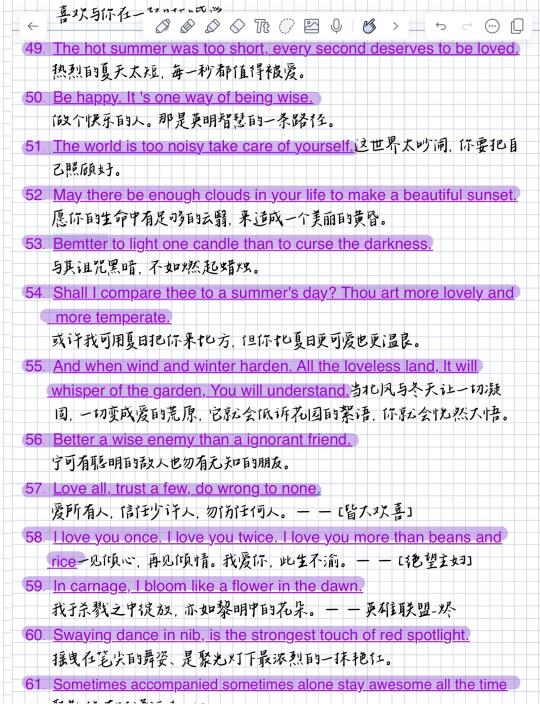 喜欢与你在一
49. The hot summer was too short, every second deserves to be loved.
热烈的夏天太短, 每一秒都值得被爱。
50. Be happy. It 's one way of being wise.
做个快乐的人。那是英明智慧的一条路径。
51. The world is too noisy take care of yourself.这世界太吵闹, 你要把自
己照顾好。
52. May there be enough clouds in your life to make a beautiful sunset.
愿你的生命中有足够的云翳, 来造成一个美丽的黄昏。
53. Bemtter to light one candle than to curse the darkness.
与其诅咒黑暗, 不如燃起蜡烛。
54. Shall I compare thee to a summer's day? Thou art more lovely and
more temperate.
或许我可用夏日把你来比方, 但你比夏日更可爱也更温良。
55. And when wind and winter harden. All the loveless land, It will
whisper of the garden, You will understand.当北风与冬天让一切凝
固, 一切变成爱的荒原, 它就会低诉花园的絮语, 你就会恍然大悟。
56. Better a wise enemy than a ignorant friend.
宁可有聪明的敌人也勿有无知的朋友。
57. Love all, trust a few, do wrong to none.
爱所有人, 信任少许人, 勿伤任何人。— — [皆大欢喜]
58. I love you once. I love you twice. I love you more than beans and
rice一见倾心, 再见倾情。我爱你, 此生不渝。— — [绝望主妇]
59. In carnage, I bloom like a flower in the dawn.
我于杀戮之中绽放, 亦如黎明中的花朵。— — 英雄联盟-烬
60. Swaying dance in nib, is the strongest touch of red spotlight.
摇曳在笔尖的舞姿、是聚光灯下最浓烈的一抹艳红。
61. Sometimes accompanied sometimes alone stay awesome all the time